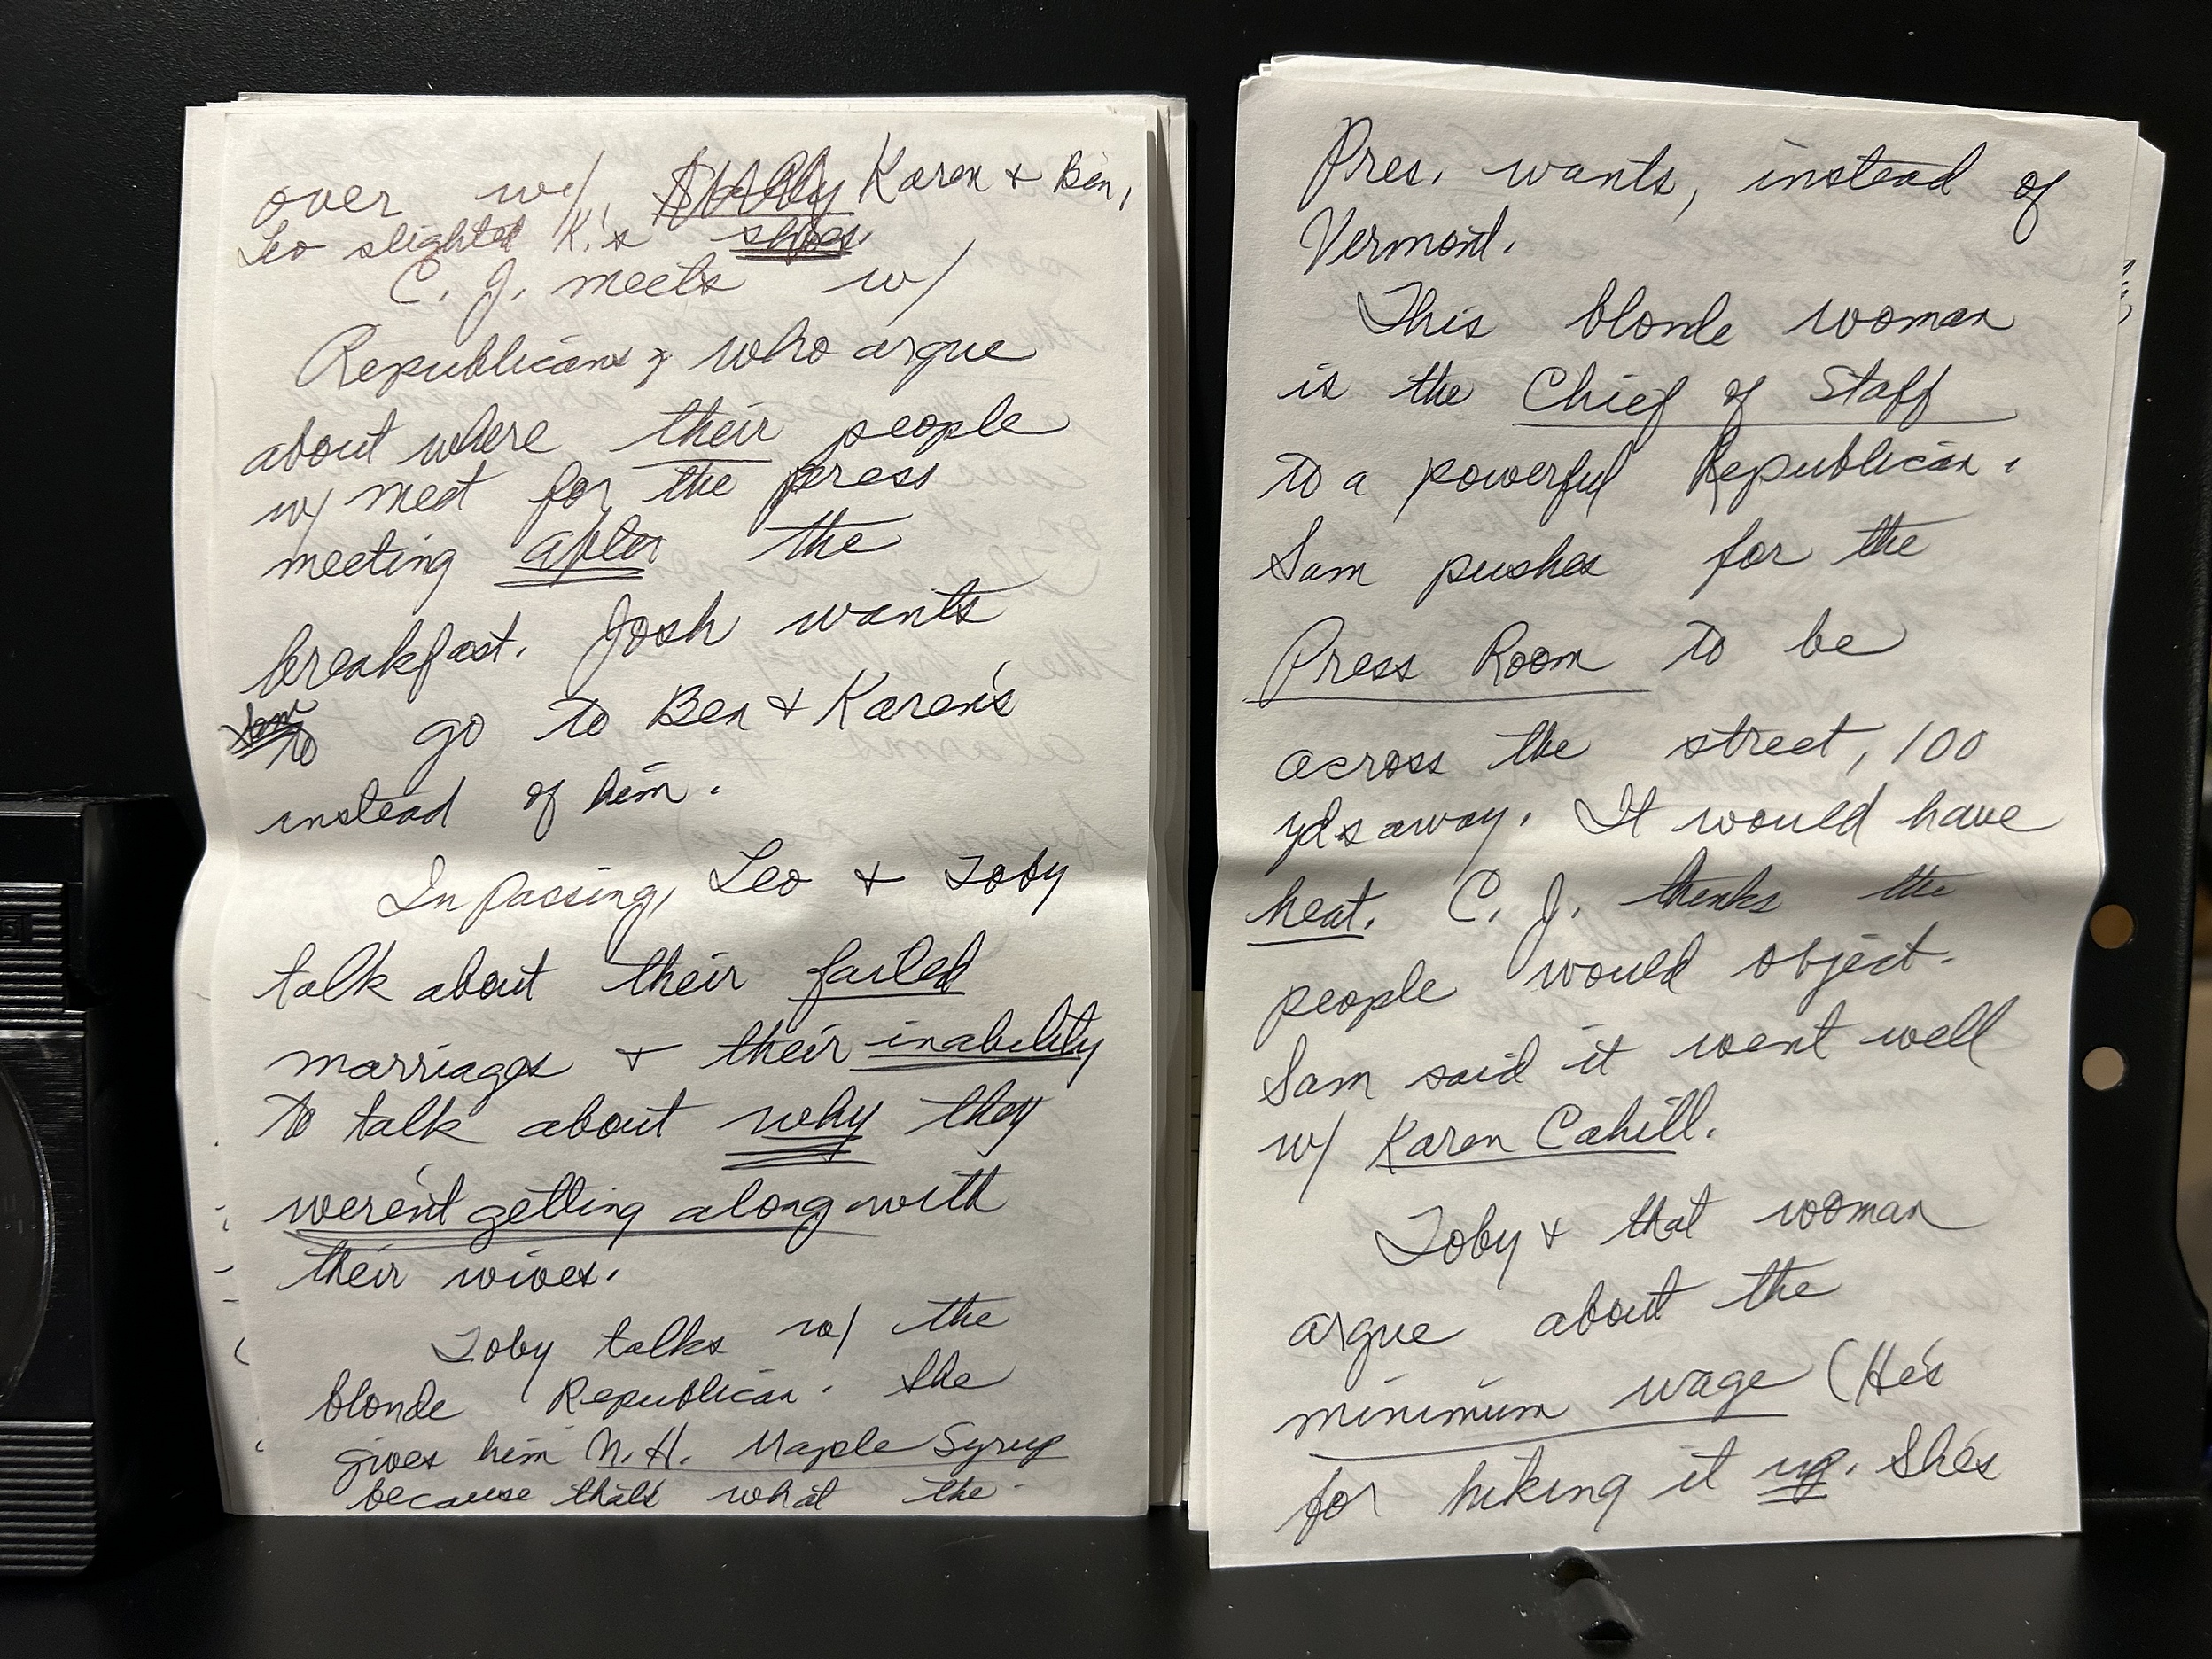 over w/ Karen & Ben,
Leo slighted K.'s shoes
C. J. meets w/
Republicans, who argue
about where their people
w/ meet for the press
meeting after the
breakfast. Josh wants
to go to Ben & Karen's
instead of him.
In passing, Leo & Toby
talk about their failed
marriages & their inability
to talk about why they
weren't getting along with
their wives.
Toby talks w/ the
blonde Republican. She
gives him N.H. Maple Syrup
because that's what the
Pres. wants, instead of
Vermont.
This blonde woman
is the Chief of Staff
to a powerful Republican.
Sam pushes for the
Press Room to be
across the street, 100
yds away. It would have
heat. C. J. thinks the
people would object.
Sam said it went well
w/ Karen Cahill.
Toby & that woman
argue about the
minimum wage (He's
for hiking it up. She's